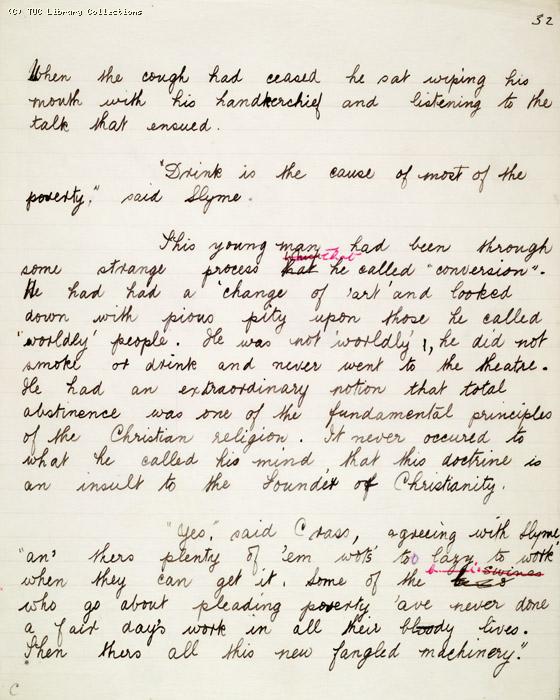 (C) TUC Library Collections
32
When the cough had ceased he sat wiping his
mouth with his handkerchief and listening to the
talk that ensued.
"Drink is the cause of most of the
poverty," said Slyme.
This young man had been through
that
some strange process he called "conversion".
He had had a 'change of 'art' and looked
down with pious pity upon those he called
'worldly' people. He was not 'worldly', he did not
smoke or drink and never went to the theatre.
He had an extraordinary notion that total
abstinence was one of the fundamental principles
of the Christian religion. It never occured to
what he called his mind, that this doctrine is
an insult to the Founder of Christianity.
"Yes," said Crass, agreeing with Slyme,
"an' thers plenty of 'em wots' too lazy to work
when they can get it. Some of the swines
who go about pleading poverty 'ave never done
a fair day's work in all their bloody lives.
Then thers all this new fangled machinery."
C